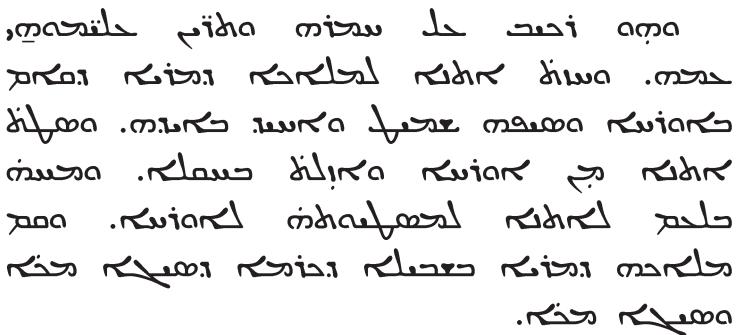 ܘܗܘ̣ ܪܟܝܒ ܥܠ ܚܡܪܗ ܘܬܪ̈ܝܢ ܥܠܝ̈ܡܘܗܝ
ܥܡܗ. ܘܚܙܬ݀ ܐܬܢܐ ܠܡܠܐܟܐ ܕܡܪܝܐ ܕܩܐܡ
ܒܐܘܪܚܐ ܘܣܝܦܗ ܫܡܝܛ ܘܐܚܝܕ ܒܐܝܕܗ. ܘܣܛܬ݀
ܐܬܢܐ ܡ̣ܢ ܐܘܪܚܐ ܘܐܙ̣ܠܬ݀ ܒܚܩܠܐ. ܘܡܚܗ̇
ܒܠܥܡ ܠܐܬܢܐ ܠܡܣܛܝܘܬܗ̇ ܠܐܘܪܚܐ. ܘܩܡ
ܡܠܐܟܗ ܕܡܪܝܐ ܒܫܒܝܠܐ ܕܟܪܡܐ ܕܣܝܓܐ ܡܟ݁ܐ
ܘܣܝܓܐ ܡܟ݁ܐ.